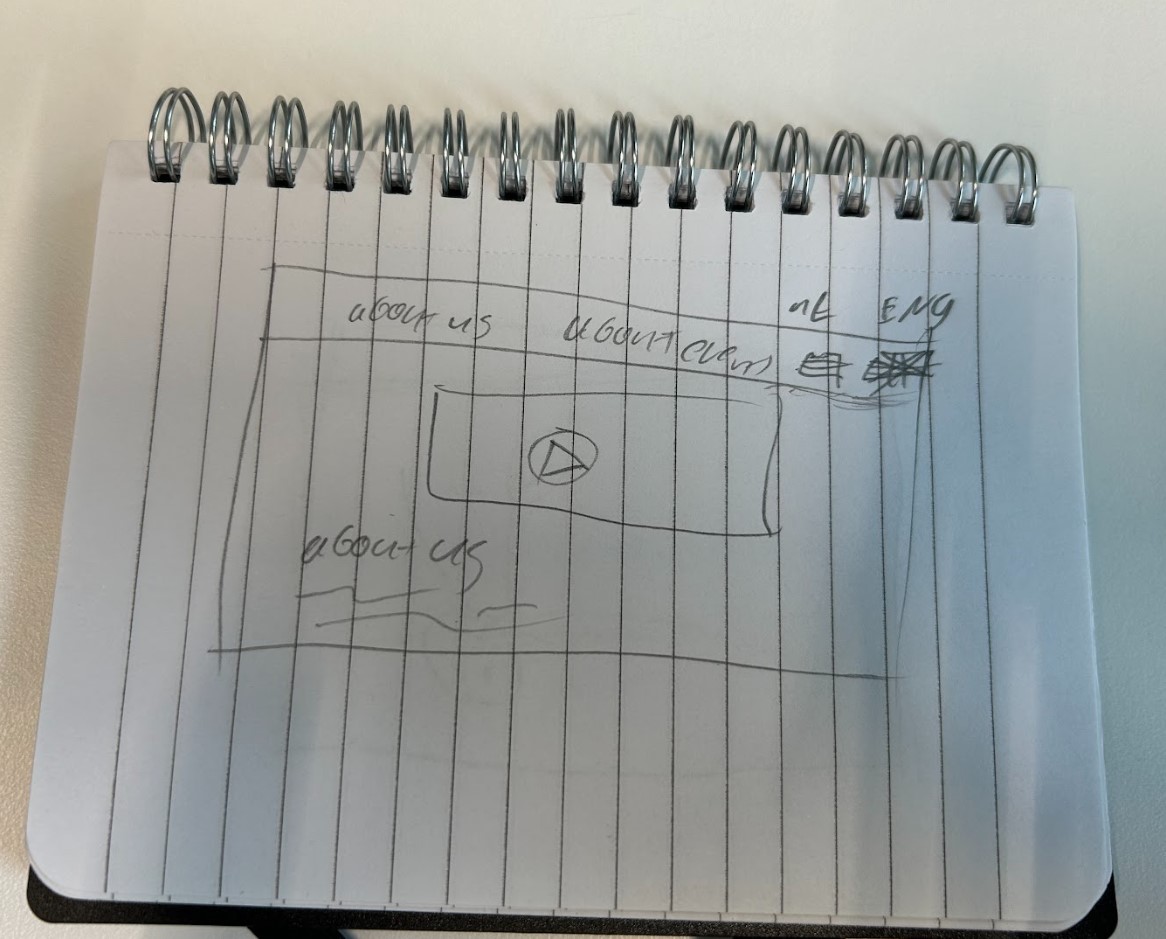 about us about event nL ENG
about us